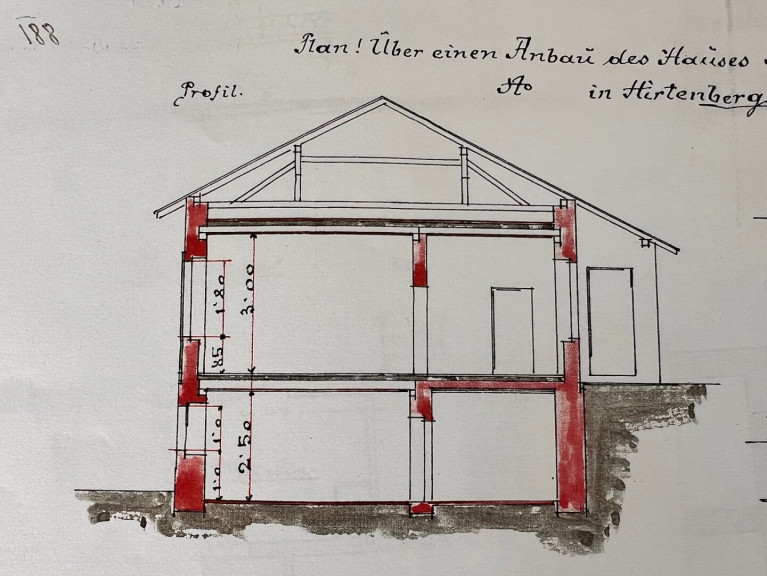 188
Plan! Über einen Anbau des Hauses
Profil.
No in Hirtenberg
1·80
3·00
·85
1·0
2·50
1·0